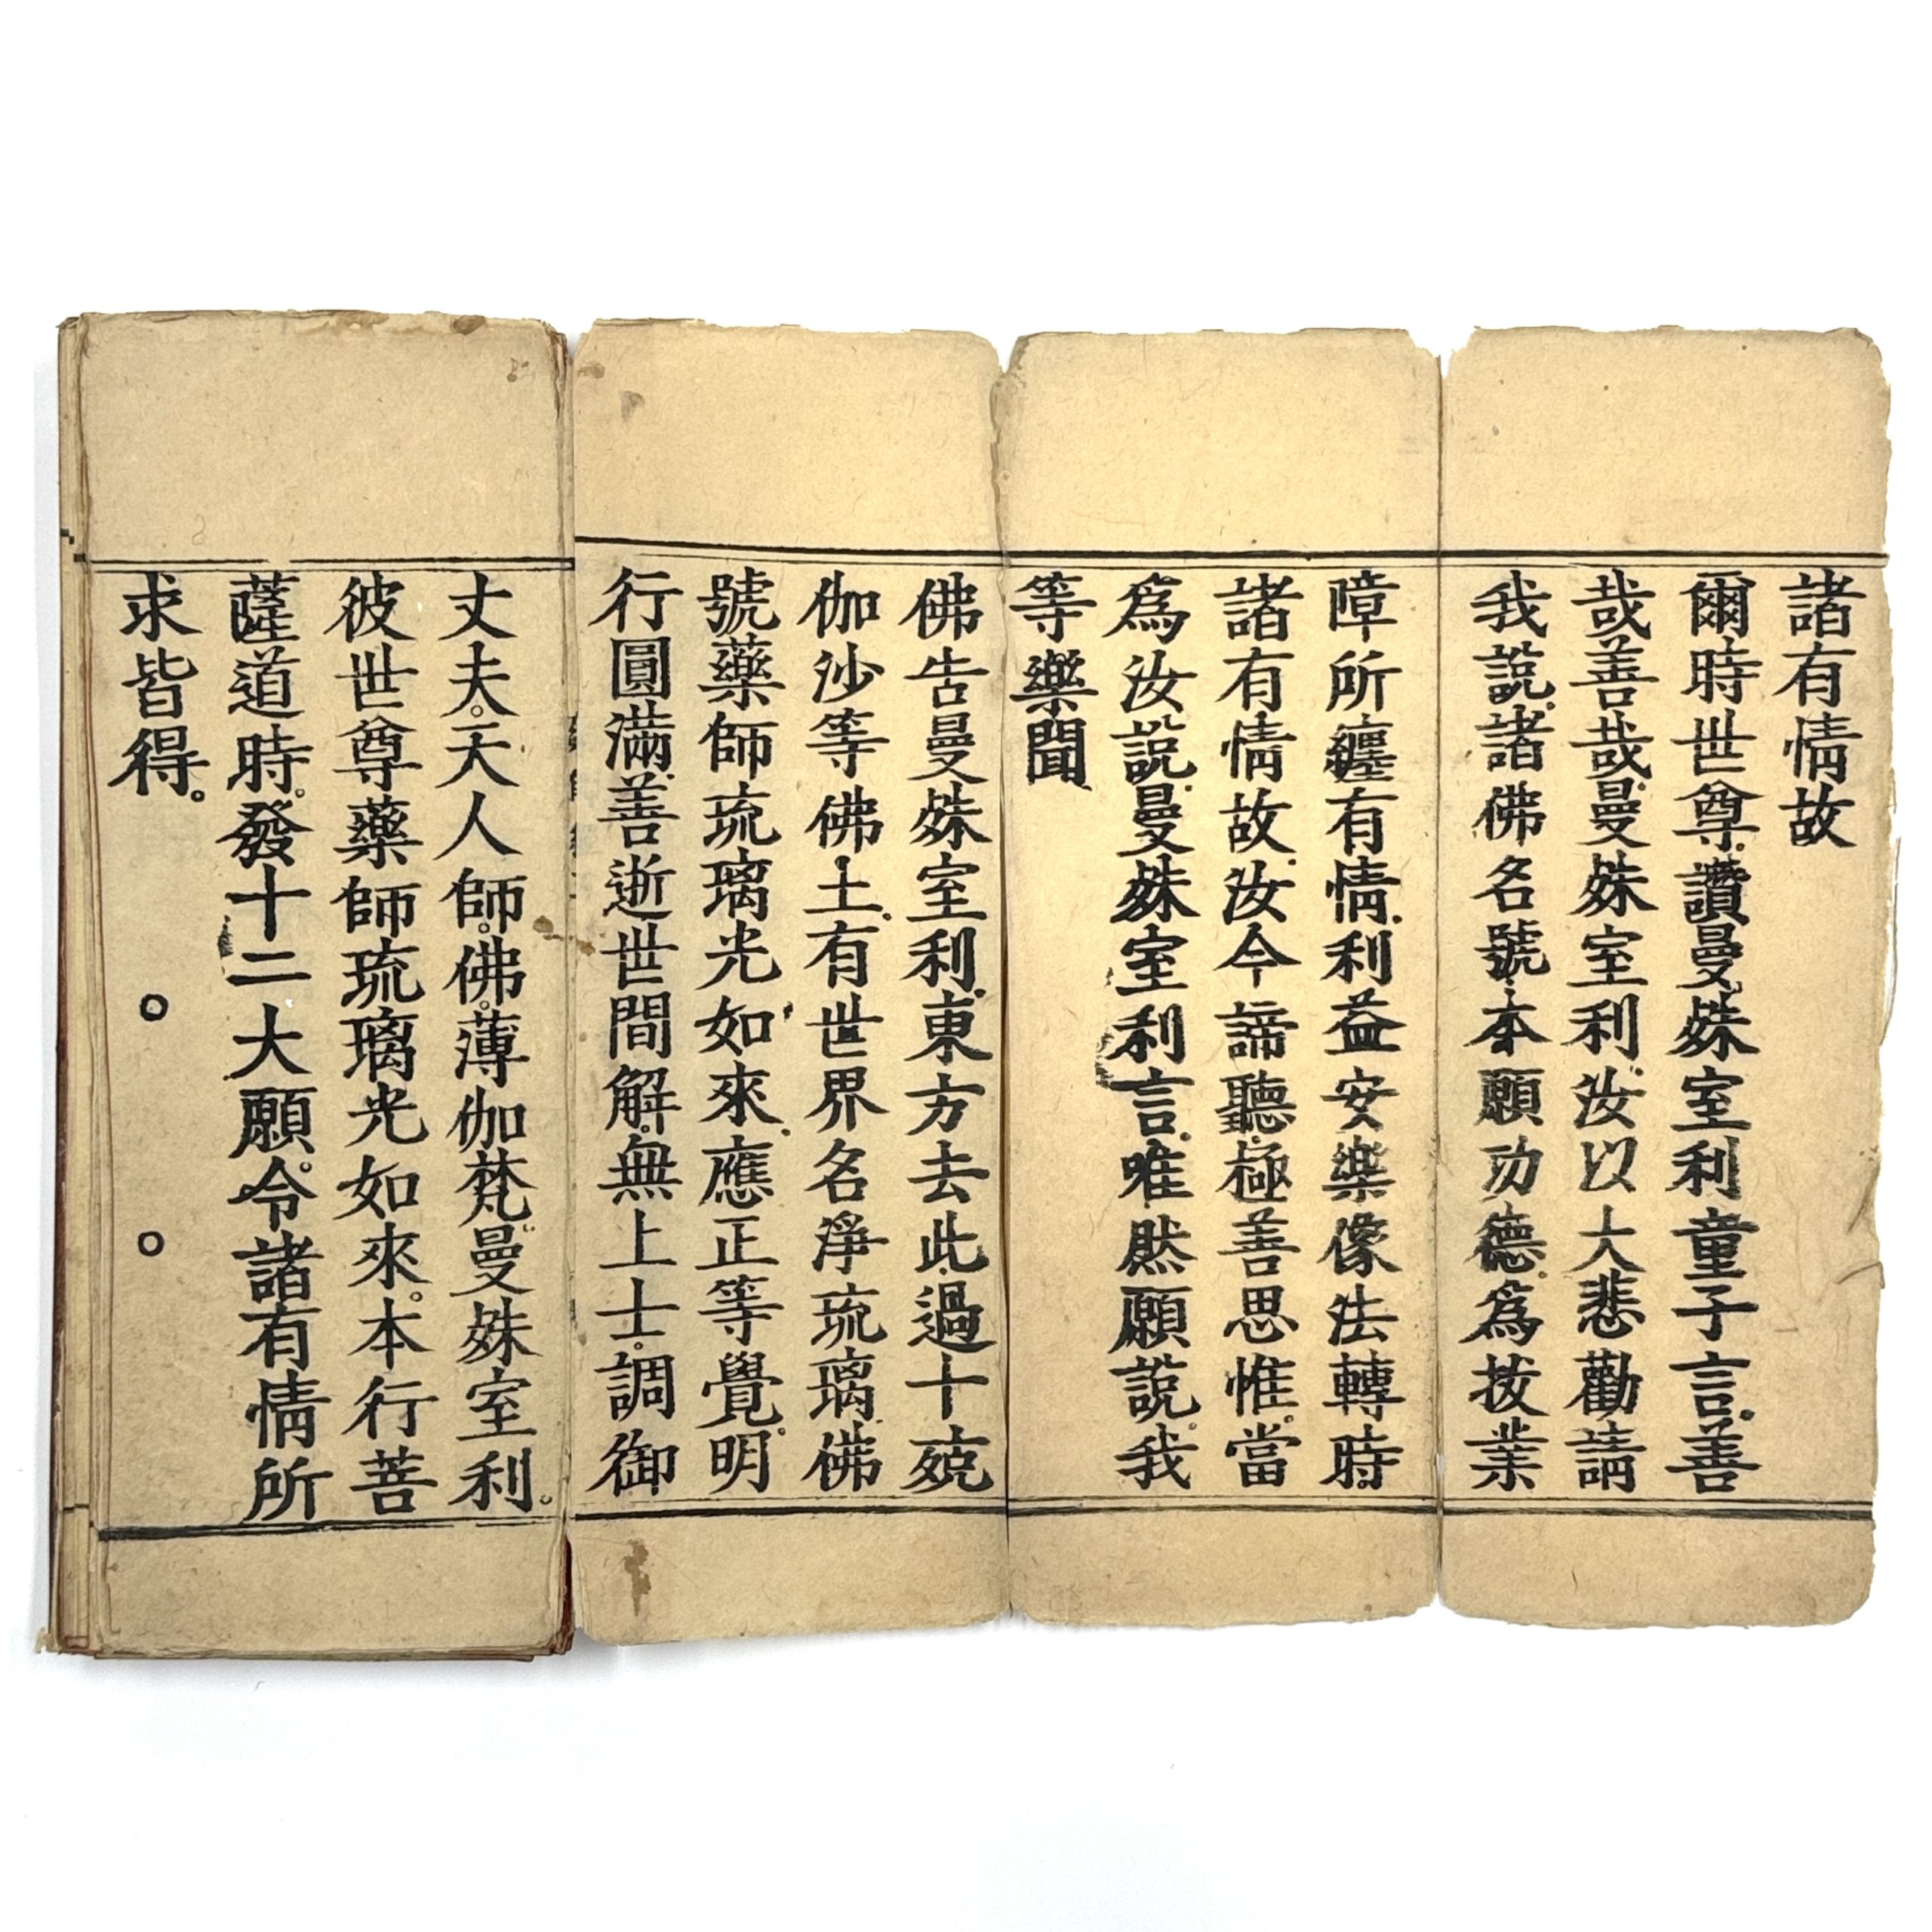 諸有情故
爾時世尊讚曼殊室利童子言善
哉善哉曼殊室利汝以大悲勸請
我說諸佛名號本願功德為拔業
障所纏有情利益安樂像法轉時
諸有情故汝今諦聽極善思惟當
為汝說曼殊室利言唯然願說我
等樂聞
佛告曼殊室利東方去此過十殑
伽沙等佛土有世界名淨琉璃佛
號藥師琉璃光如來應正等覺明
行圓滿善逝世間解無上士調御
丈夫天人師佛薄伽梵曼殊室利
彼世尊藥師琉璃光如來本行菩
薩道時發十二大願令諸有情所
求皆得。○○